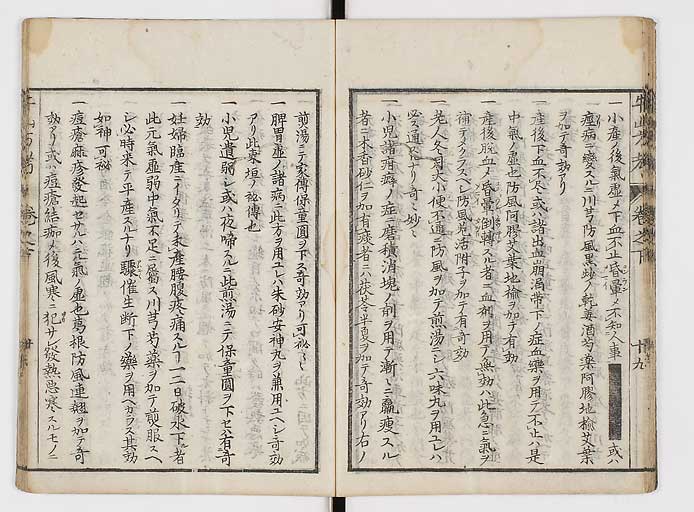 一小産ノ後氣虚〆下血不止昏暈〆不知人事 或ハ
瘈病ニ變スルニ川芎防風黒炒ノ乾姜酒芍薬阿膠地楡艾葉
ヲ加テ奇効アリ
一産後下血不尽或ハ諸出血崩漏帯下ノ症血藥ヲ用テ不止ハ是
中氣ノ虚也防風阿膠艾葉地楡ヲ加テ有効
一産後脱血〆昏暈倒轉スル者ニ血剤ヲ用テ無効ハ此急ニ氣ヲ
補テクラスヘシ防風羌活附子ヲ加テ有効
一老人冬月大小便不通ニ防風ヲ加テ煎湯ニシ六味丸ヲ用ユレハ
必ス通スル奇〻妙〻
一小児諸疳癖ノ症ニ磨積消塊ノ剤ヲ用テ漸〻ニ羸痩スル
者ニ木香砂仁ヲ加有痰者ニハ茯苓半夏ヲ加テ奇効アリ右ノ
前湯ニテ家傳保童圓ヲ下ス奇効アリ可秘〻〻
一脾胃虚ノ諸病ニ此方ヲ用ユレハ朱砂安神丸ヲ兼用ユヘシ奇効
アリ此東垣ノ秘傳也
一小児遺弱シ或ハ夜啼スルニ此煎湯ニテ保童圓ヲ下セハ有奇
効
一妊婦臨産ニイタリテ未産腰腹疼痛スルコ一二日破水下ル者
此元氣虚弱中氣不足ニ屬ス川芎芍薬ヲ加テ煎服スヘ
シ必時来テ平産スルナリ驟催生断下ノ藥ヲ用ヘカラス其効
如神可秘
一痘瘡麻疹發起セサルハ元氣ノ虚也葛根防風連翹ヲ加テ奇
効アリ或ハ痘瘡結痂〆後風寒ニ犯サレ發熱悪寒スルモノニ
牛山方考 巻之下 十九